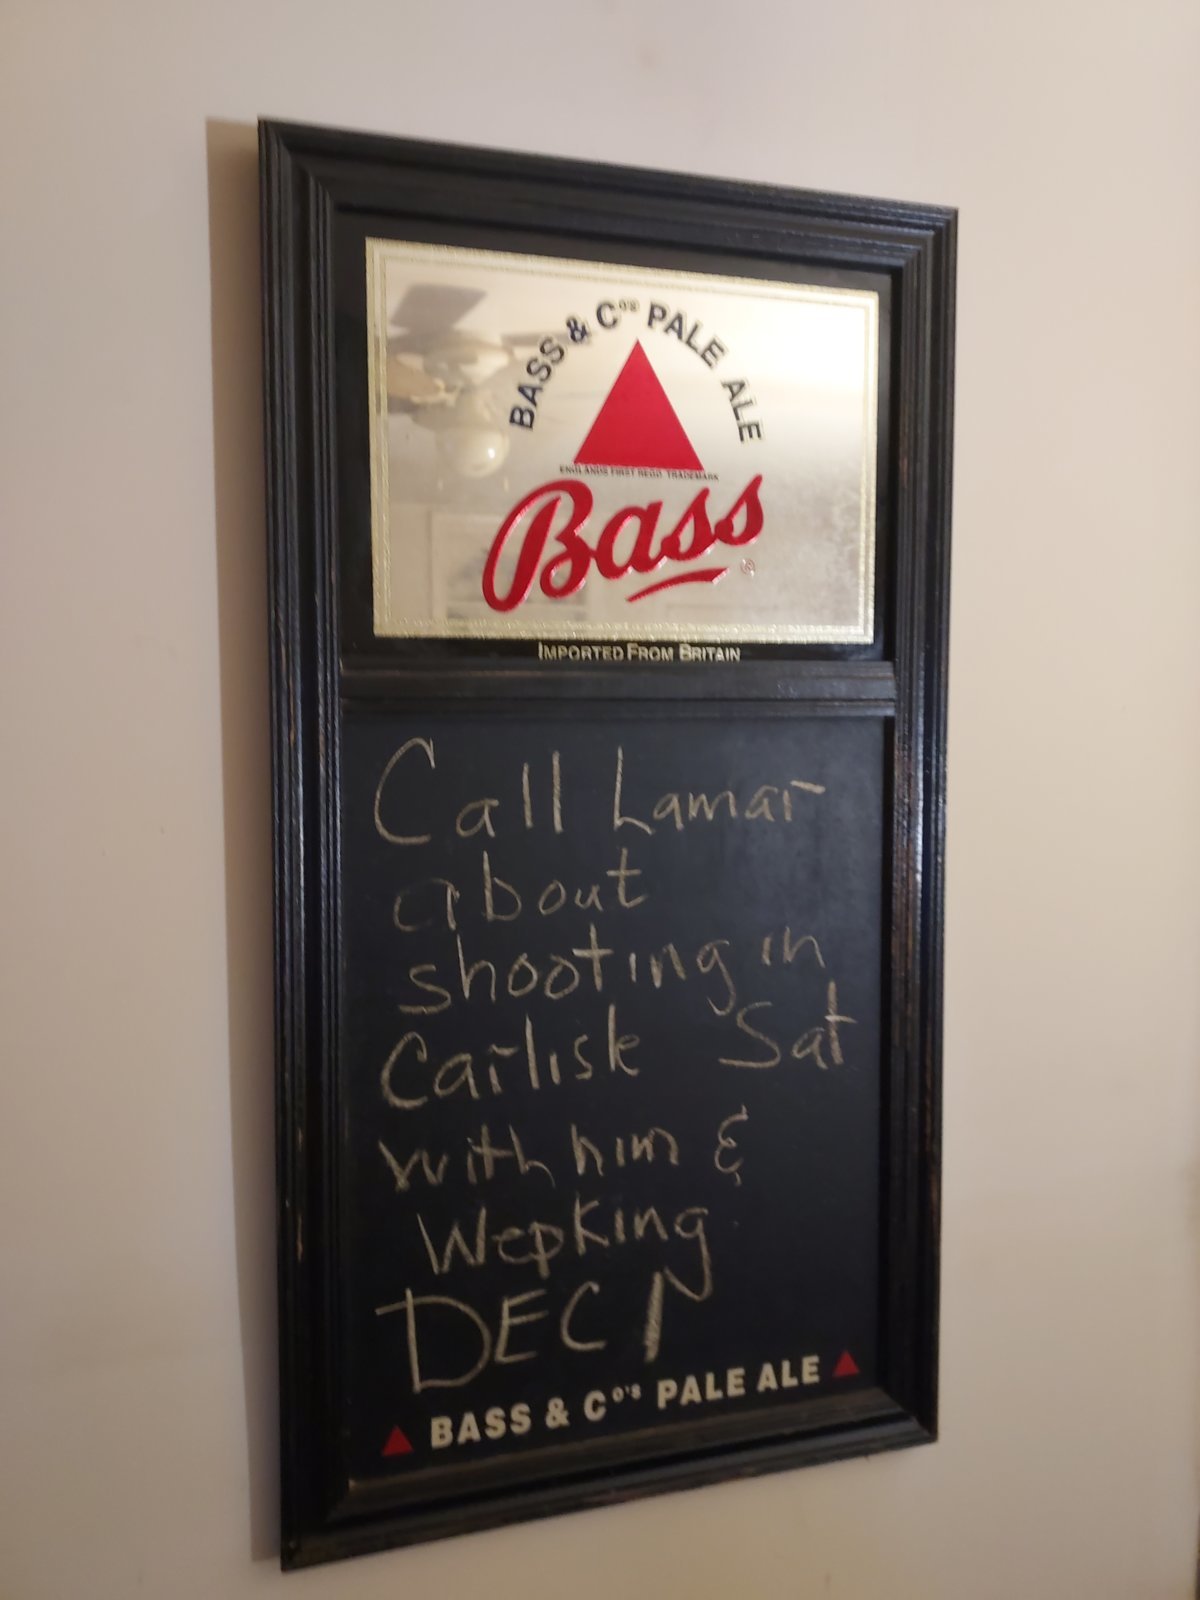 BASS & Cᴼ'ˢ PALE ALE
ENGLANDS FIRST REGD. TRADEMARK
Bass
®
IMPORTED FROM BRITAIN
Call Lamar
about
shooting in
Carlisle Sat
with him &
Wepking
DEC 1
BASS & Cᴼ'ˢ PALE ALE